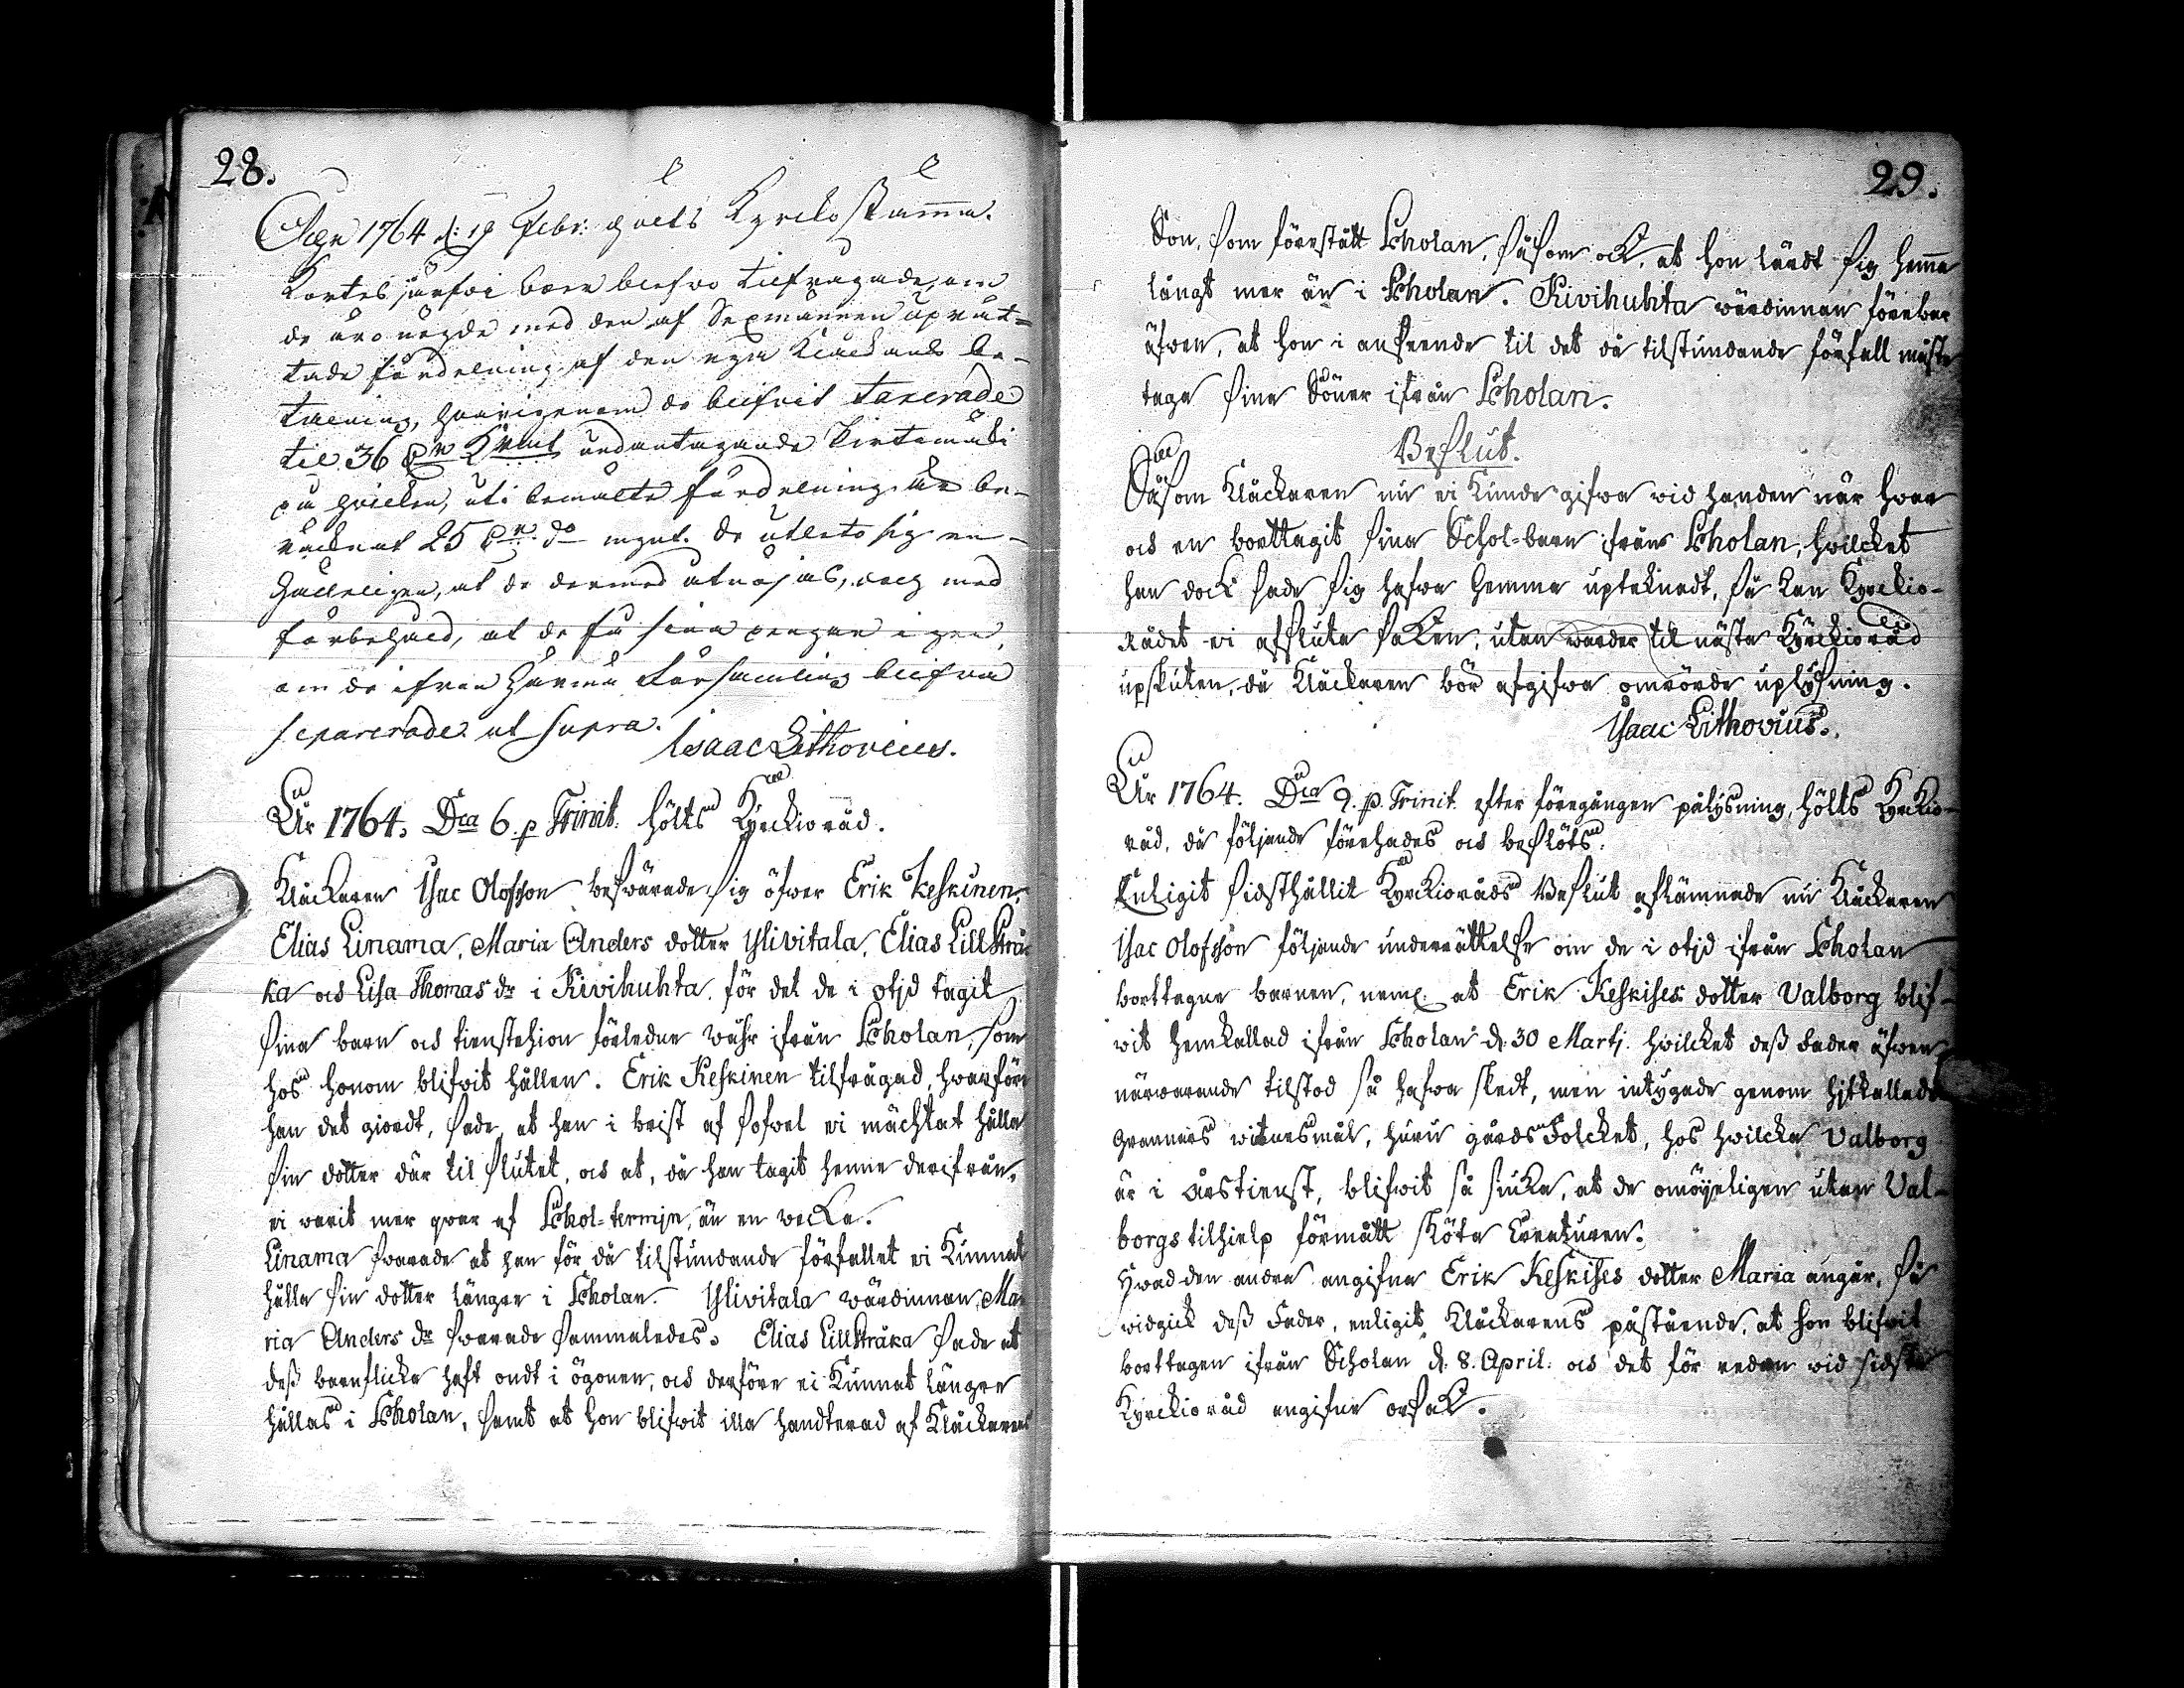 28.
Åhr 1764 d: 19 Febr: hölts Kyrkostämma.
Kortesjärfvi boer blefvo tilfrågade, om
de äro nögde med den af Sexmännen uprät-
tade fördelning af den nya Klåckans be-
talning, hvarigenom de blifvit taxerade
til 36 undantagande Pirtimäki
på hvilken, uti bemälte fördelning är be-
räcknat 25 do mynt. De utlåto sig en-
hälleligen, at de dermed åtnöjas, dock med
förbehåld, at de få sina pengar igen,
om de ifrån Härmä Församling blifva
separerade. ut supra.
Isaac Lithovius.
År 1764. Dca 6. p Trinit. hölts Kyrckioråd.
Klåckaren Isac Olofsson beswärade sig öfwer Erik Keskinen,
Elias Linama, Maria Anders dotter Ylivitala, Elias Lillstrå-
ka och Lisa Thomas dr i Kivihuhta, för det de i otjd tagit
sina barn och tienstehion förledne wåhr ifrån Scholan, som
hos honom blifvit hållen. Erik Keskinen tilfrågad, hwarföre
han det giordt, sade, at han i brist af sofvel ei mächtat hålla
sin dotter där til slutet, och at, då han tagit henne derifrån,
ei warit mer qvar af Schol-termin, än en wecka.
Linama swarade at han för då tilstundande förfallet ei kunnat
hålla sin dotter längre i Scholan. Ylivitala wärdinnan, Ma-
ria Anders dr swarade sammaledes. Elias Lillstråka sade at
dess barnflicka haft ondt i ögonen, och derföre ei kunnat längre
hållas i Scholan, samt at hon blifwit illa handterad af Klåckarens
29.
Son, som förestått Scholan, såsom ock, at hon lärdt sig hemma
långt mer än i Scholan. Kivihuhta wärdinnan förebar
äfwen, at hon i anseende til det då tilstundande förfall måste
taga sina Söner ifrån Scholan.
Beslut.
Såsom Klåckaren nu ei kunde gifwa wid handen när hwar
och en borttagit sina Schol-barn ifrån Scholan, hwilcket
han dock sade sig hafwa hemma upteknadt, så kan Kyrckio-
Rådet ei afsluta saken, utan warder til nästa Kyrckioråd
upskuten, då Klåckaren bör afgifwa omrörde uplysning.
Isaac Lithovius.
År 1764. Dca 9. p. Trinit. efter föregången pålysning, hölts Kyrckio-
råd, då följande förehades och beslöts.
Enligit sidsthållit Kyrckioråds Beslut aflämnade nu Klåckaren
Isac Olofsson följande underrättelse om de i otjd ifrån Scholan
borttagne barnen, neml. at Erik Keskises dotter Valborg blif-
wit hemkallad ifrån Scholan d. 30 Martj. hwilcket dess Fader äfwen
närwarande tilstod så hafwa skedt, men intygade genom hitkallade
Grannars witnesmål, huru gårds Folcket, hos hwilcka Valborg
är i årstienst, blifwit så siuka, at de omöyeligen utan Val-
borgs tilhielp förmått sköta Creaturen.
Hwad den andra angifna Erik Keskises dotter Maria angår, så
widgick dess Fader, enligit Klåckarens påstående, at hon blifwit
borttagen ifrån Scholan d. 8. April. och det för redan wid sidsta
Kyrckioråd angifne orsak.